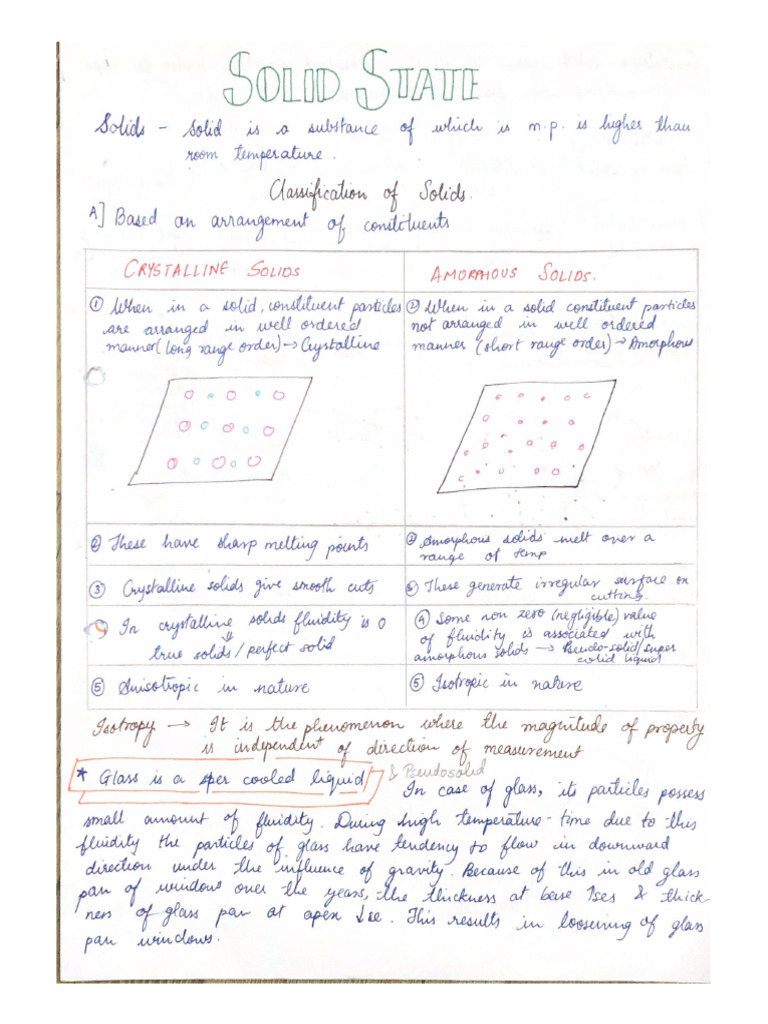 SOLID STATE
Solids - Solid is a substance of which is m.p. is higher than
room temperature.
Classification of Solids.
A] Based on arrangement of constituents
CRYSTALLINE SOLIDS
① When in a solid, constituent particles
are arranged in well ordered
manner (long range order) → Crystalline
② These have sharp melting points
③ Crystalline solids give smooth cuts
In crystalline solids fluidity is 0
⇓
true solids / perfect solid
⑤ Anisotropic in nature
AMORPHOUS SOLIDS.
When in a solid constituent particles
not arranged in well ordered
manner (short range order) → Amorphous
② Amorphous solids melt over a
range of temp
These generate irregular surface on
cutting.
④ Some non zero (negligible) value
of fluidity is associated with
amorphous solids → Pseudo-solid/super
liquid
⑤ Isotropic in nature
Isotropy → It is the phenomenon where the magnitude of property
is independent of direction of measurement
* Glass is a sper cooled liquid & Pseudosolid
In case of glass, its particles possess
small amount of fluidity. During high temperature-time due to this
fluidity the particles of glass have tendency to flow in downward
direction under the influence of gravity. Because of this in old glass
pan of windows over the years, the thickness at base ↑ses & thick-
ness of glass pan at apen ↓se. This results in loosening of glass
pan windows.